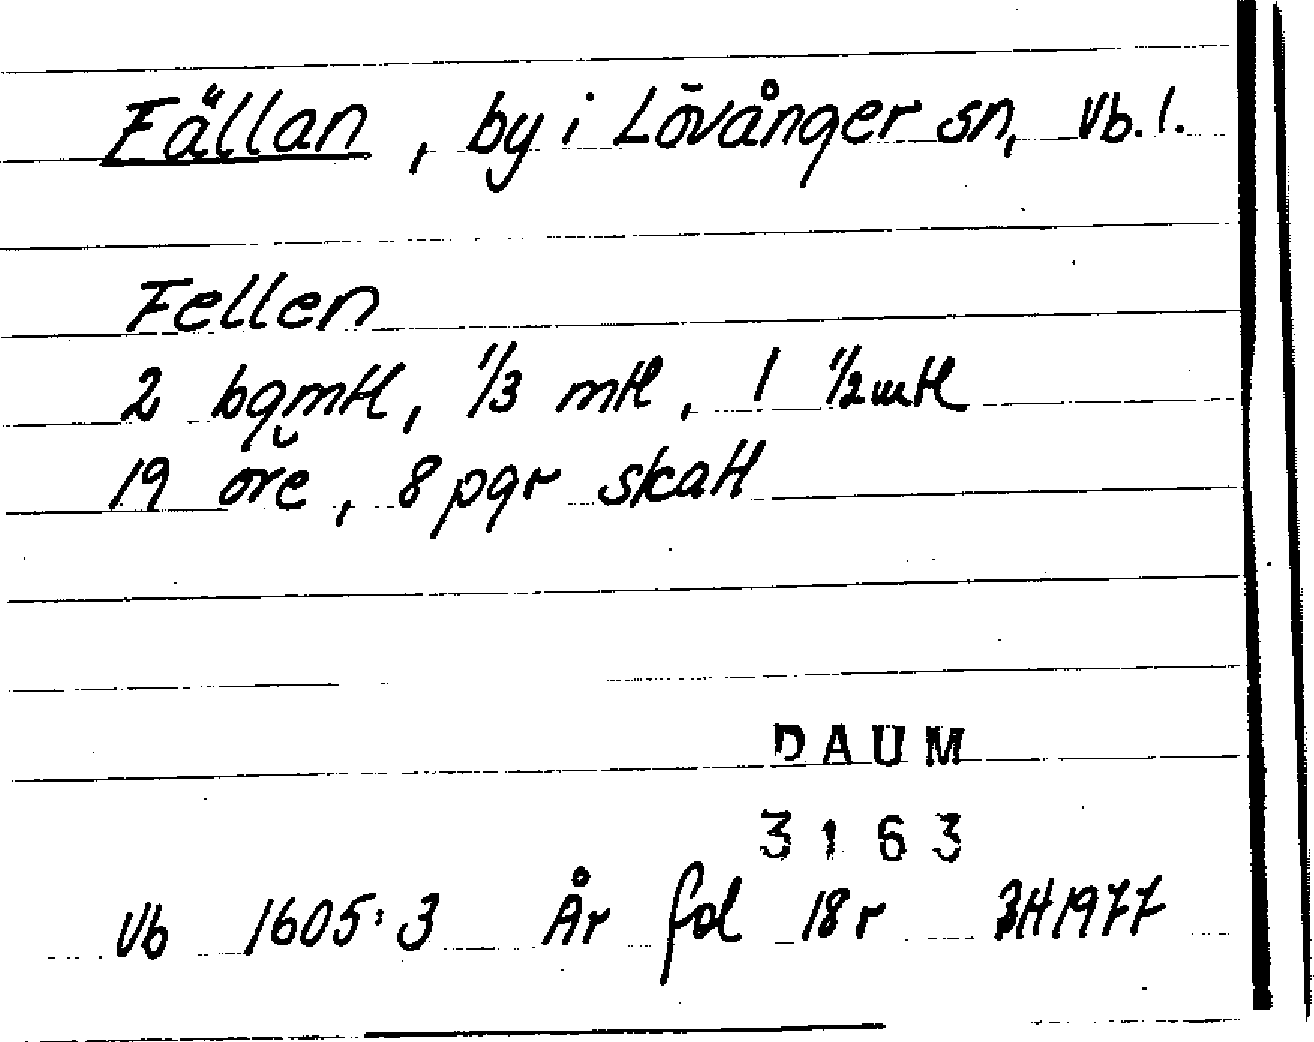 Fällan, by i Lövånger sn, Vb. l.
Fellen
2 bgmtl, 1/3 mtl, 1 1/2 mtl
19 öre, 8 pgr skatt
DAUM
3163
Vb 1605:3 År fol 18r BH 1977